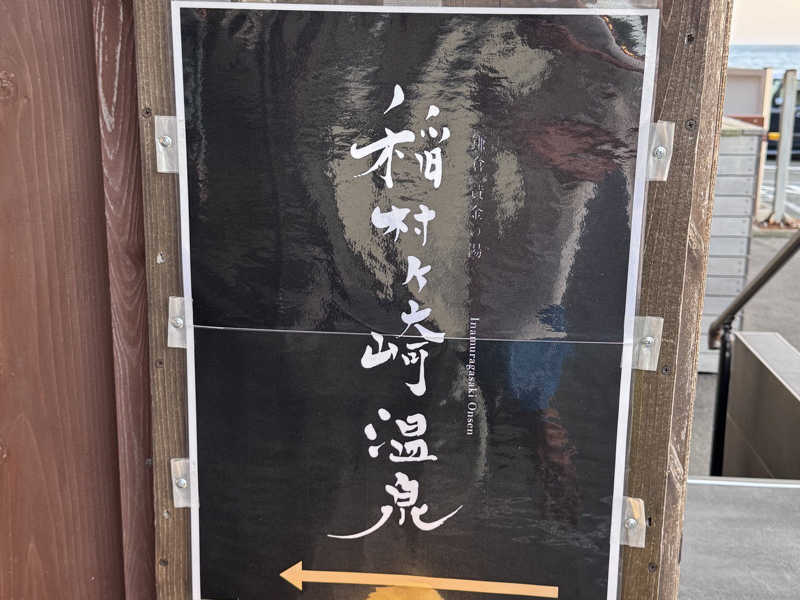 鎌倉 黄金の湯
稲村ヶ崎温泉
Inamuragasaki Onsen